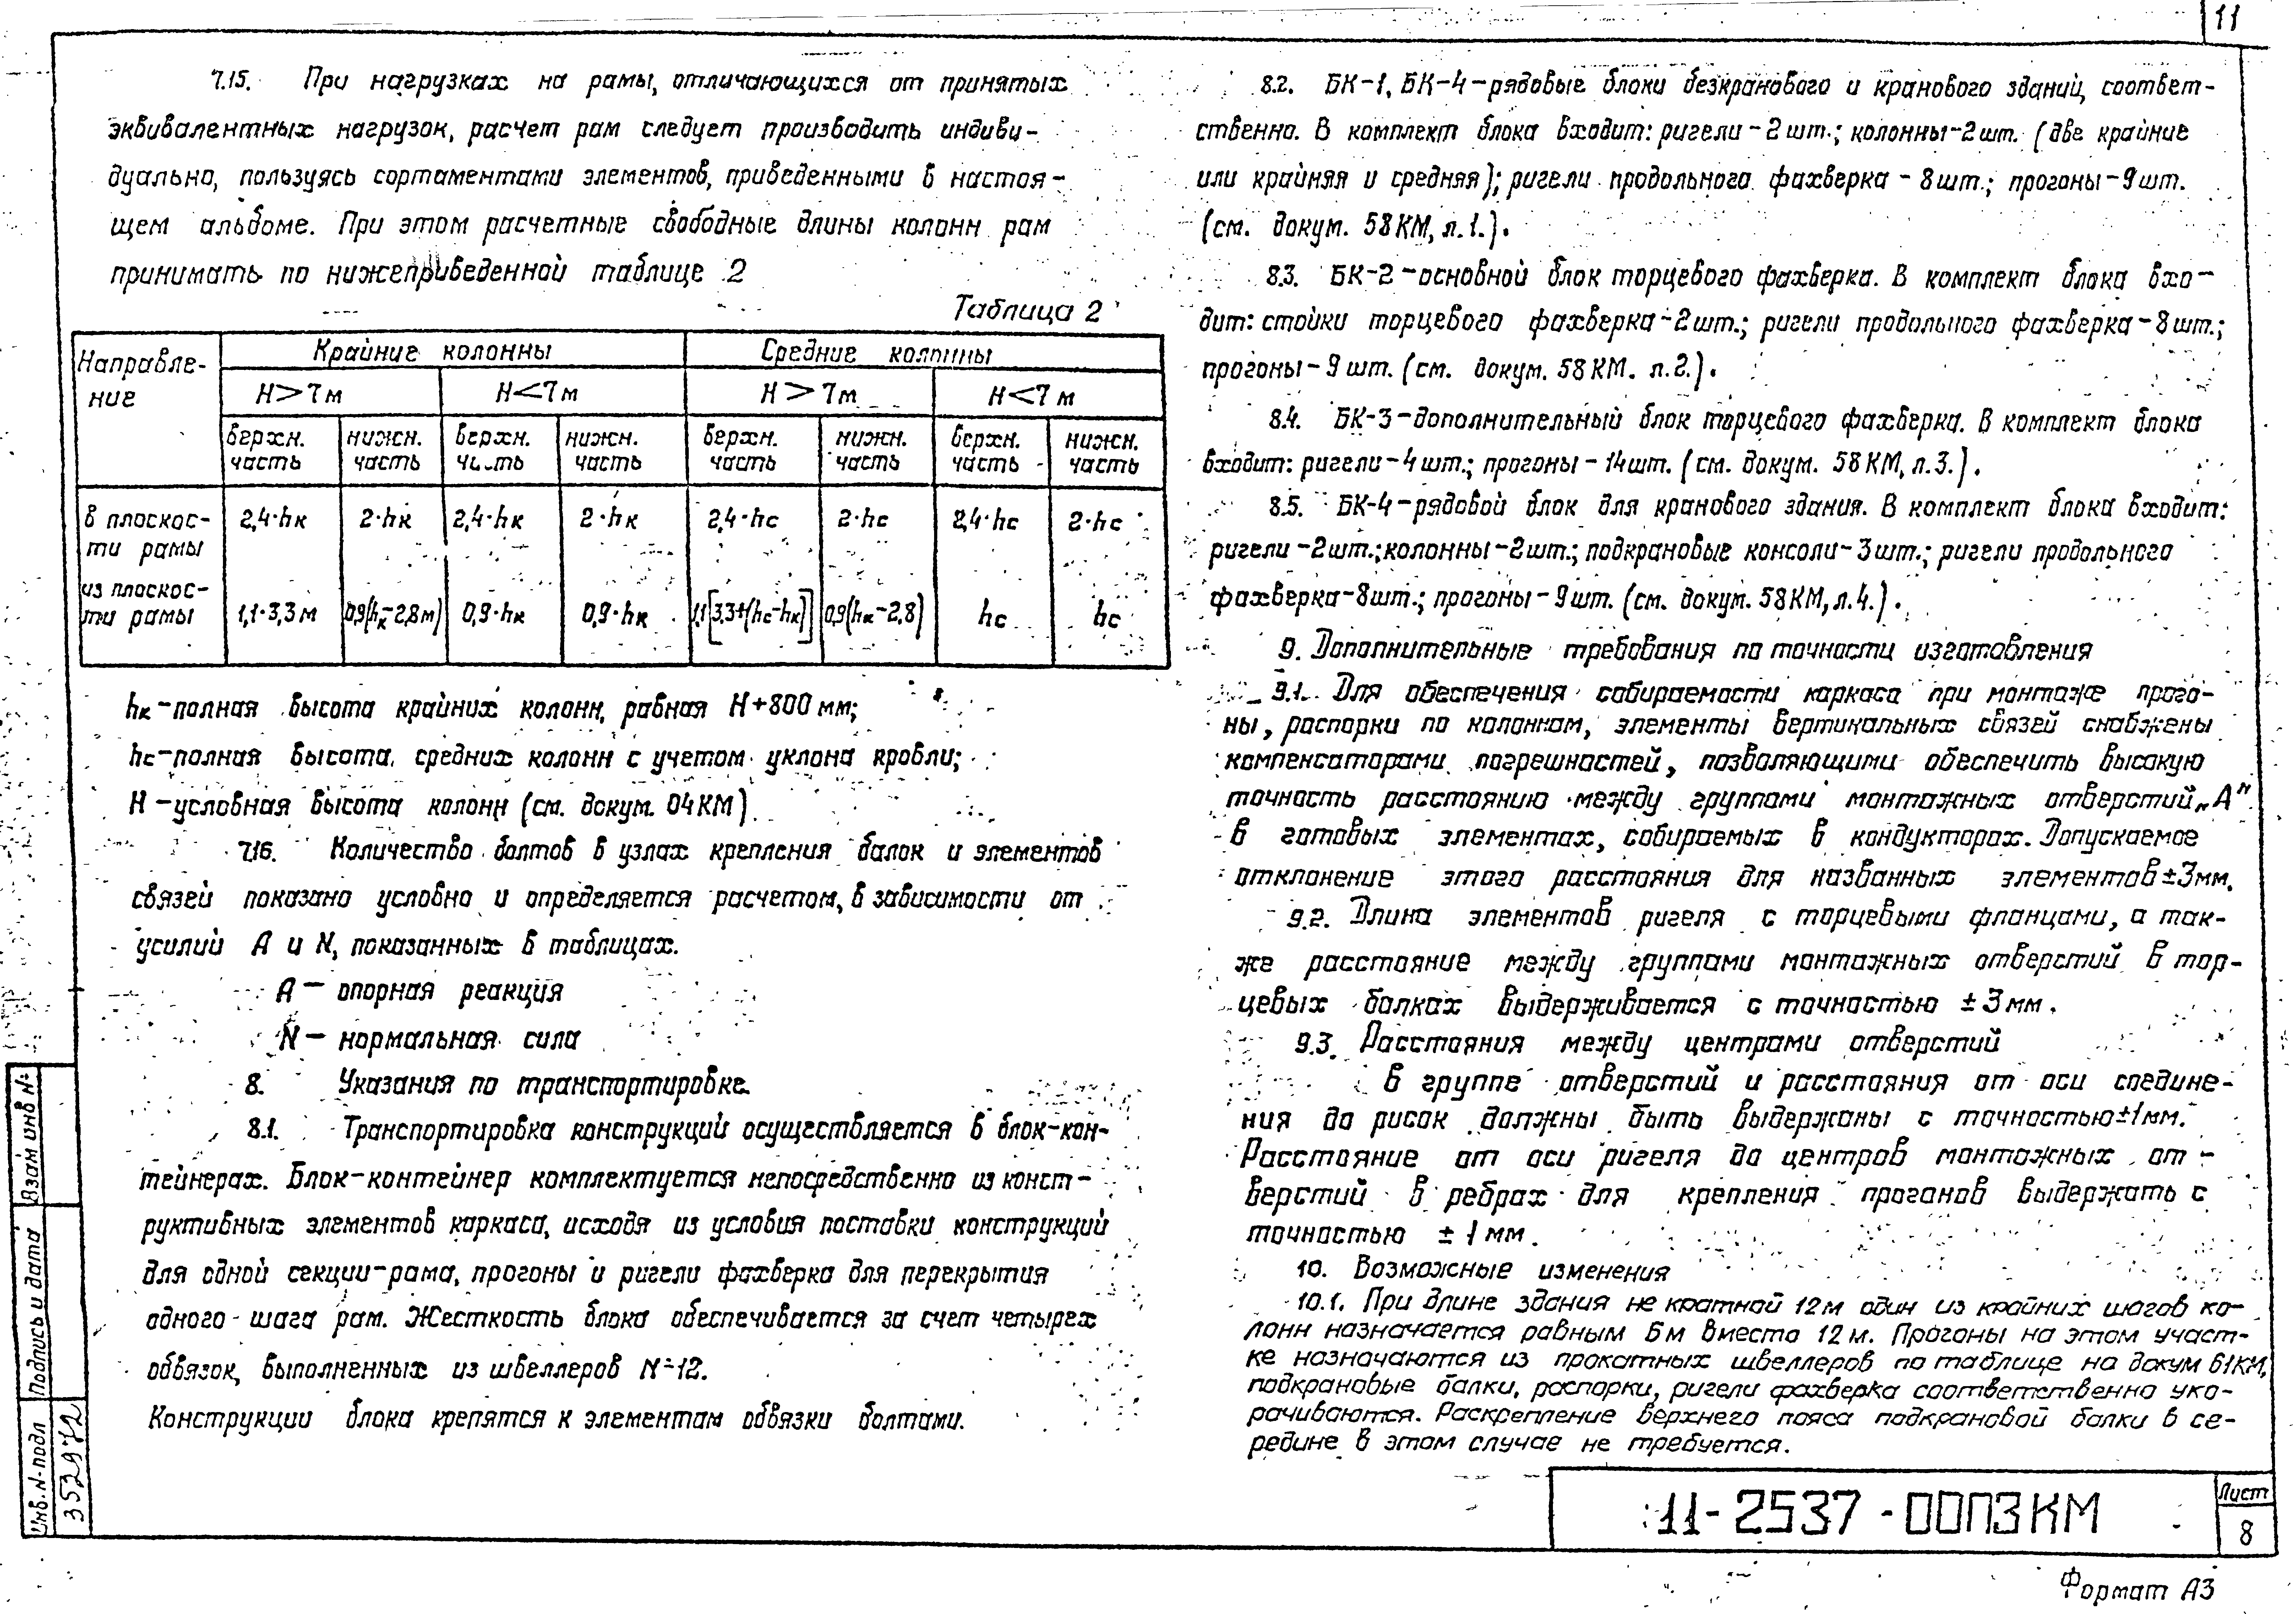 11
7.15. При нагрузках на рамы, отличающихся от принятых
эквивалентных нагрузок, расчет рам следует производить индиви-
дуально, пользуясь сортаментами элементов, приведенными в настоя-
щем альбоме. При этом расчетные свободные длины колонн рам
принимать по нижеприведенной таблице 2
Таблица 2
Направле-
ние
Крайние колонны
Средние колонны
H>7м
H<7м
H>7м
H<7м
верхн. часть
нижн. часть
верхн. часть
нижн. часть
верхн. часть
нижн. часть
верхн. часть
нижн. часть
в плоскос-
ти рамы
2,4·hк
2·hк
2,4·hк
2·hк
2,4·hс
2·hс
2,4·hс
2·hс
из плоскос-
ти рамы
1,1·3,3м
0,9(hк-2,8м)
0,9·hк
0,9·hк
1,1[3,3+(hс-hк)]
0,9(hк-2,8)
hс
hс
hк-полная высота крайних колонн, равная H+800 мм;
hс-полная высота средних колонн с учетом уклона кровли;
H-условная высота колонн (см. докум. 04КМ)
7.16. Количество болтов в узлах крепления балок и элементов
связей показано условно и определяется расчетом, в зависимости от
усилий A и N, показанных в таблицах.
A — опорная реакция
N — нормальная сила
8. Указания по транспортировке.
8.1. Транспортировка конструкций осуществляется в блок-кон-
тейнерах. Блок-контейнер комплектуется непосредственно из конст-
руктивных элементов каркаса, исходя из условия поставки конструкций
для одной секции-рама, прогоны и ригели фахверка для перекрытия
одного шага рам. Жесткость блока обеспечивается за счет четырех
обвязок, выполненных из швеллеров №12.
Конструкции блока крепятся к элементам обвязки болтами.
8.2. БК-1, БК-4-рядовые блоки безкранового и кранового зданий, соответ-
ственно. В комплект блока входит: ригели-2шт.; колонны-2шт. (две крайние
или крайняя и средняя); ригели продольного фахверка-8шт.; прогоны-9шт.
(см. докум. 58КМ, л.1.).
8.3. БК-2-основной блок торцевого фахверка. В комплект блока вхо-
дит: стойки торцевого фахверка-2шт.; ригели продольного фахверка-8шт.;
прогоны-9шт. (см. докум. 58КМ. л.2.).
8.4. БК-3-дополнительный блок торцевого фахверка. В комплект блока
входит: ригели-4шт.; прогоны-14шт. (см. докум. 58КМ, л.3.).
8.5. БК-4-рядовой блок для кранового здания. В комплект блока входит:
ригели-2шт.; колонны-2шт.; подкрановые консоли-3шт.; ригели продольного
фахверка-8шт.; прогоны-9шт. (см. докум. 58КМ, л.4.).
9. Дополнительные требования по точности изготовления
9.1. Для обеспечения собираемости каркаса при монтаже прого-
ны, распорки по колоннам, элементы вертикальных связей снабжены
компенсаторами погрешностей, позволяющими обеспечить высокую
точность расстоянию между группами монтажных отверстий „А"
в готовых элементах, собираемых в кондукторах. Допускаемое
отклонение этого расстояния для названных элементов±3мм.
9.2. Длина элементов ригеля с торцевыми фланцами, а так-
же расстояние между группами монтажных отверстий в тор-
цевых балках выдерживается с точностью ±3мм.
9.3. Расстояния между центрами отверстий
в группе отверстий и расстояния от оси соедине-
ния до рисок должны быть выдержаны с точностью±1мм.
Расстояние от оси ригеля до центров монтажных от-
верстий в ребрах для крепления прогонов выдержать с
точностью ±1мм.
10. Возможные изменения
10.1. При длине здания не кратной 12м один из крайних шагов ко-
лонн назначается равным 6м вместо 12м. Прогоны на этом участ-
ке назначаются из прокатных швеллеров по таблице на докум 61КМ,
подкрановые балки, распорки, ригели фахверка соответственно уко-
рачиваются. Раскрепление верхнего пояса подкрановой балки в се-
редине в этом случае не требуется.
Взам инв №
Подпись и дата
Инв. № подл
352972
11-2537-00ПЗКМ
Лист
8
Формат А3